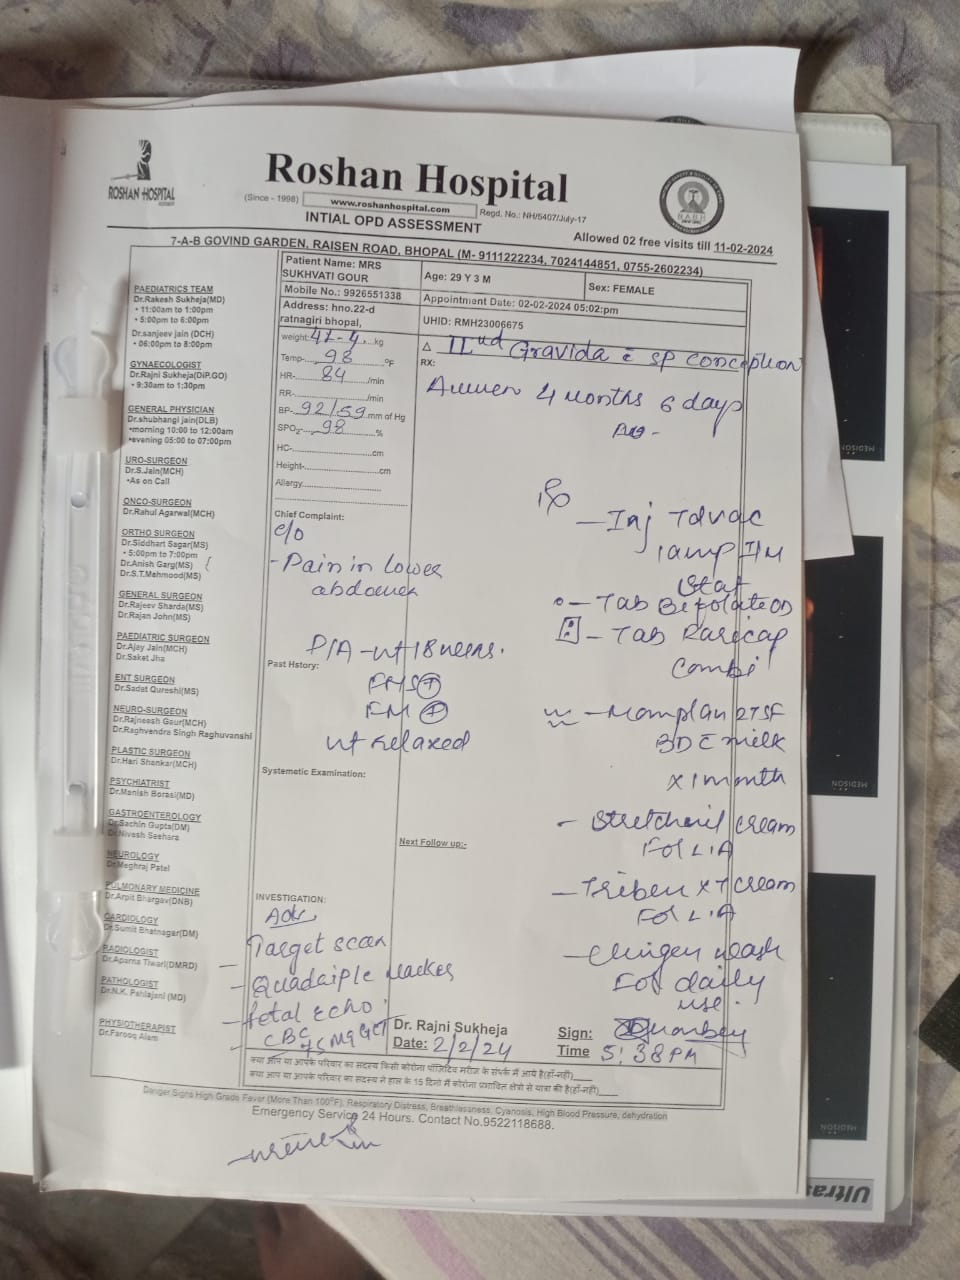 ROSHAN HOSPITAL
Roshan Hospital
(Since - 1998)
www.roshanhospital.com
Regd. No.: NH/5407/July-17
INTIAL OPD ASSESSMENT
Allowed 02 free visits till 11-02-2024
7-A-B GOVIND GARDEN, RAISEN ROAD, BHOPAL (M- 9111222234, 7024144851, 0755-2602234)
PAEDIATRICS TEAM
Dr.Rakesh Sukheja(MD)
• 11:00am to 1:00pm
• 5:00pm to 6:00pm
Dr.sanjeev jain (DCH)
• 06:00pm to 8:00pm
GYNAECOLOGIST
Dr.Rajni Sukheja(DiP.GO)
• 9:30am to 1:30pm
GENERAL PHYSICIAN
Dr.shubhangi jain(DLB)
•morning 10:00 to 12:00am
•evening 05:00 to 07:00pm
URO-SURGEON
Dr.S.Jain(MCH)
•As on Call
ONCO-SURGEON
Dr.Rahul Agarwal(MCH)
ORTHO SURGEON
Dr.Siddhart Sagar(MS)
• 5:00pm to 7:00pm
Dr.Anish Garg(MS)
Dr.S.T.Mehmood(MS)
GENERAL SURGEON
Dr.Rajeev Sharda(MS)
Dr.Rajan John(MS)
PAEDIATRIC SURGEON
Dr.Ajay Jain(MCH)
Dr.Saket Jha
ENT SURGEON
Dr.Sadat Qureshi(MS)
NEURO-SURGEON
Dr.Rajneesh Gaur(MCH)
Dr.Raghvendra Singh Raghuvanshi
PLASTIC SURGEON
Dr.Hari Shankar(MCH)
PSYCHIATRIST
Dr.Manish Borasi(MD)
GASTROENTEROLOGY
Dr.Sachin Gupta(DM)
Dr.Nivesh Seehara
NEUROLOGY
Dr.Meghraj Patel
PULMONARY MEDICINE
Dr.Arpit Bhargav(DNB)
CARDIOLOGY
Dr.Sumit Bhatnagar(DM)
RADIOLOGIST
Dr.Aparna Tiwari(DMRD)
PATHOLOGIST
Dr.N.K. Pahlajani (MD)
PHYSIOTHERAPIST
Dr.Farooq Alam
Patient Name: MRS
SUKHVATI GOUR
Age: 29 Y 3 M
Sex: FEMALE
Mobile No.: 9926551338
Appointment Date: 02-02-2024 05:02:pm
Address: hno.22-d
ratnagiri bhopal,
UHID: RMH23006675
weight: kg
Temp- 98 °F
HR- 84 /min
RR- /min
BP- 92/59 mm of Hg
SPO2- 98 %
HC- cm
Height- cm
Allergy
Δ IInd Gravida c SP Conception
RX:
4 months 6 days
Chief Complaint:
c/o
- Pain in lower
abdomen
P/A - ut 18 weeks.
Past Hstory:
FHS +
FM +
ut Relaxed
Systemetic Examination:
Rx
- Inj Tdvac
1amp I/M
Stat
- Tab
- Tab Raricap
Combi
- Momplan 27SF
BD c milk
x 1 month
- cream
For L/A
Next Follow up:-
- cream
For L/A
- wash
For daily
use.
INVESTIGATION:
Adv
- Target scan
- Quadruple
- fetal echo
- CBC
Dr. Rajni Sukheja
Date: 2/2/24
Sign:
Time 5:38PM
क्या आप या आपके परिवार का सदस्य किसी कोरोना पॉजिटिव मरीज के संपर्क में आये है(हाँ-नहीं)
क्या आप या आपके परिवार का सदस्य ने हाल के 15 दिनों में कोरोना प्रभावित क्षेत्रो से यात्रा की है(हाँ-नहीं)
Danger Signs High Grade Fever (More Than 100°F), Respiratory Distress, Breathlessness, Cyanosis, High Blood Pressure, dehydration
Emergency Service 24 Hours. Contact No.9522118688.
MEDISON
MEDISON
MEDISON
Ultras